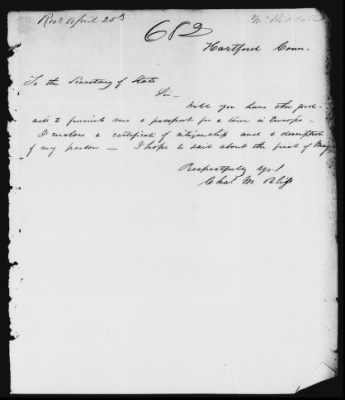 Recd April 28th
682
Hartford Conn.
To the Secretary of State
Sir—
Will you have the good-
ness to furnish me a passport for a tour in Europe.
I enclose a certificate of citizenship and a description
of my person — I hope to sail about the first of May
Respectfully Yrs
Chas M